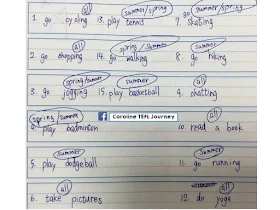 all summer/spring summer/spring
1. go cycling 13. play tennis 7. go skating
all spring / summer summer
2. go shopping 14. go walking 8. go hiking
spring/summer summer all
3. go jogging 15. play basketball 9. chatting
spring / summer all
4. play badminton 10. read a book
Caroline TEFL Journey
summer summer
5. play dodgeball 11. go running
all all
6. take pictures 12. do yoga